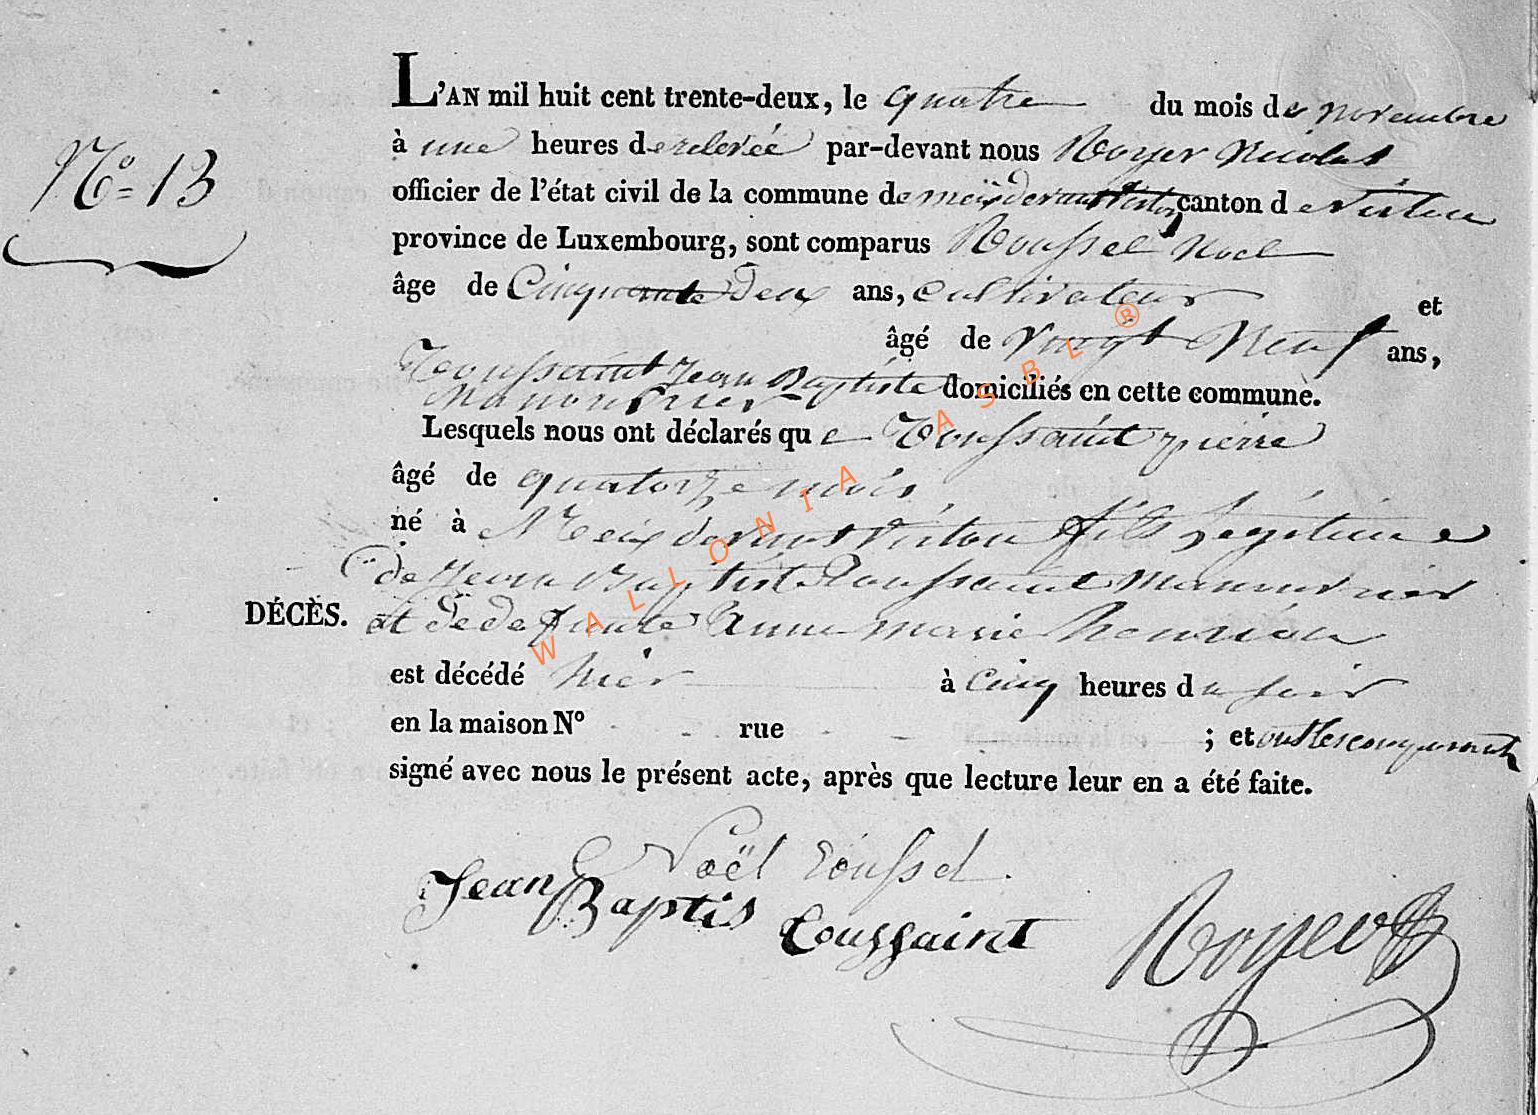 L'AN mil huit cent trente-deux, le quatre du mois de novembre
N° 13
à une heures de relevée par-devant nous Royer Nicolas
officier de l'état civil de la commune de meix devant Virton canton de Virton
province de Luxembourg, sont comparus Roussel Noel
âge de Cinquante Deux ans, cultivateur et
âgé de vingt Neuf ans,
Toussaint Jean Baptiste domiciliés en cette commune.
Manouvrier
Lesquels nous ont déclarés que Toussaint pierre
âgé de quatorze mois
né à Meix devant Virton fils Legitime
de Jean Baptist Toussaint Manouvrier
DÉCÈS. et de defunte Anne marie henrion
est décédé hier à cinq heures du soir
en la maison N° rue ; et ont les comparants
signé avec nous le présent acte, après que lecture leur en a été faite.
Noël Roussel
Jean Baptis Toussaint Royer
WALLONIA ASBL ®